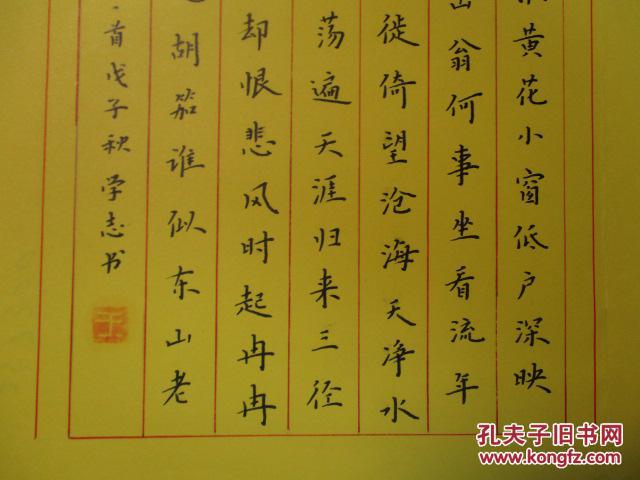 黄花小窗低户深映
山翁何事坐看流年
徙倚望沧海天净水
荡遍天涯归来三径
却恨悲风时起冉冉
胡笳谁似东山老
首戊子秋学志书
孔夫子旧书网
www.kongfz.com